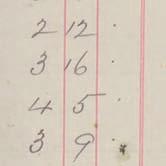 2 12
3 16
4 5
3 9